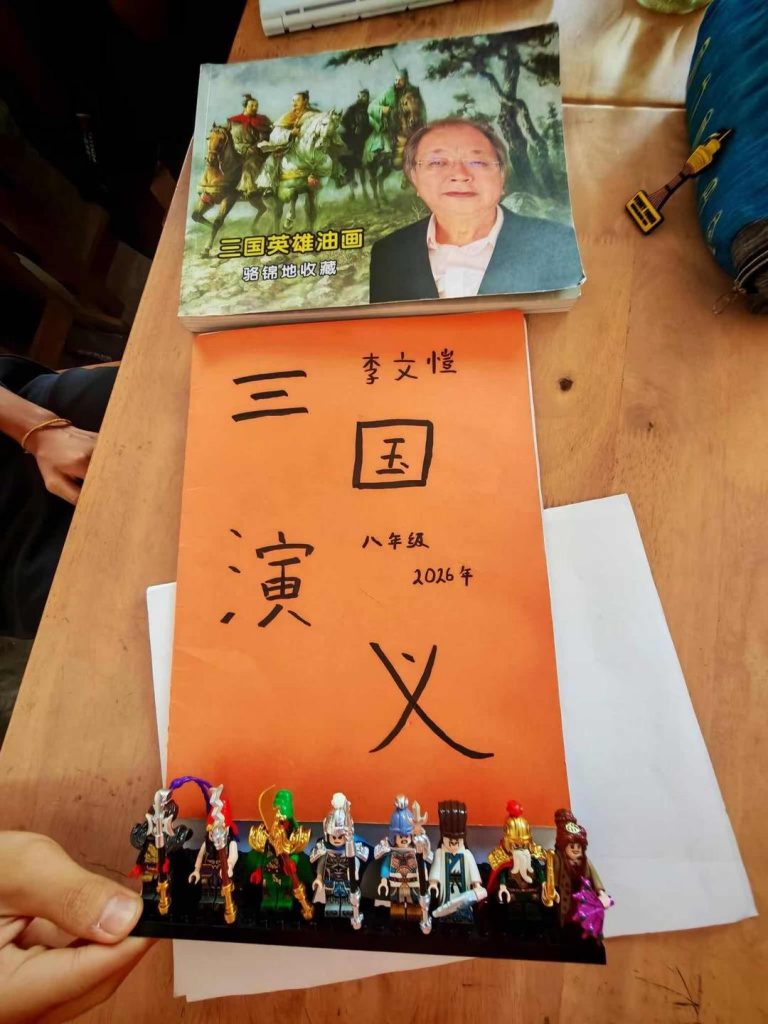 三国英雄油画
骆锦地收藏
李文恺
三国
八年级
2026年
演义